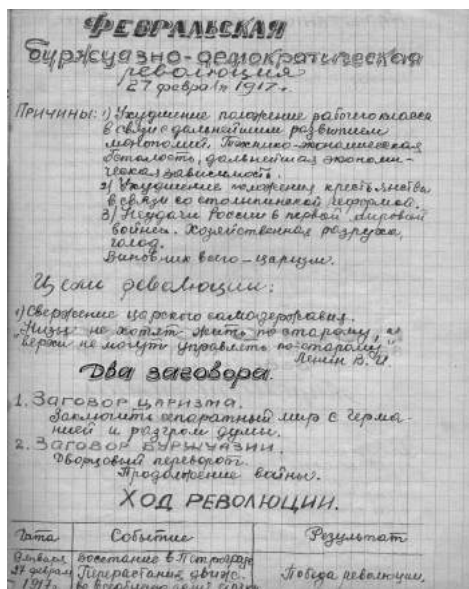 ФЕВРАЛЬСКАЯ
буржуазно-демократическая
революция
27 февраля 1917 г.
ПРИЧИНЫ: 1) Ухудшение положение рабочего класса
в связи с дальнейшим развитием
монополий. Технико-экономическая
отсталость, дальнейшая экономи-
ческая зависимость.
2) Ухудшение положения крестьянства
в связи со столыпинской реформой.
3) Неудачи России в первой мировой
войне. Хозяйственная разруха,
голод.
Виновник всего - царизм.
Цели революции:
1) Свержение царского самодержавия.
"Низы не хотят жить по старому, а
верхи не могут управлять по-старому"
Ленин В. И.
Два заговора.
1. ЗАГОВОР ЦАРИЗМА.
Заключить сепаратный мир с Герма-
нией и разгром думы.
2. ЗАГОВОР БУРЖУАЗИИ.
Дворцовый переворот.
Продолжение войны.
ХОД РЕВОЛЮЦИИ.
Дата Событие Результат
восстание в Петрограде
27 февраля Перерастание движ. Победа революции.
1917 г.